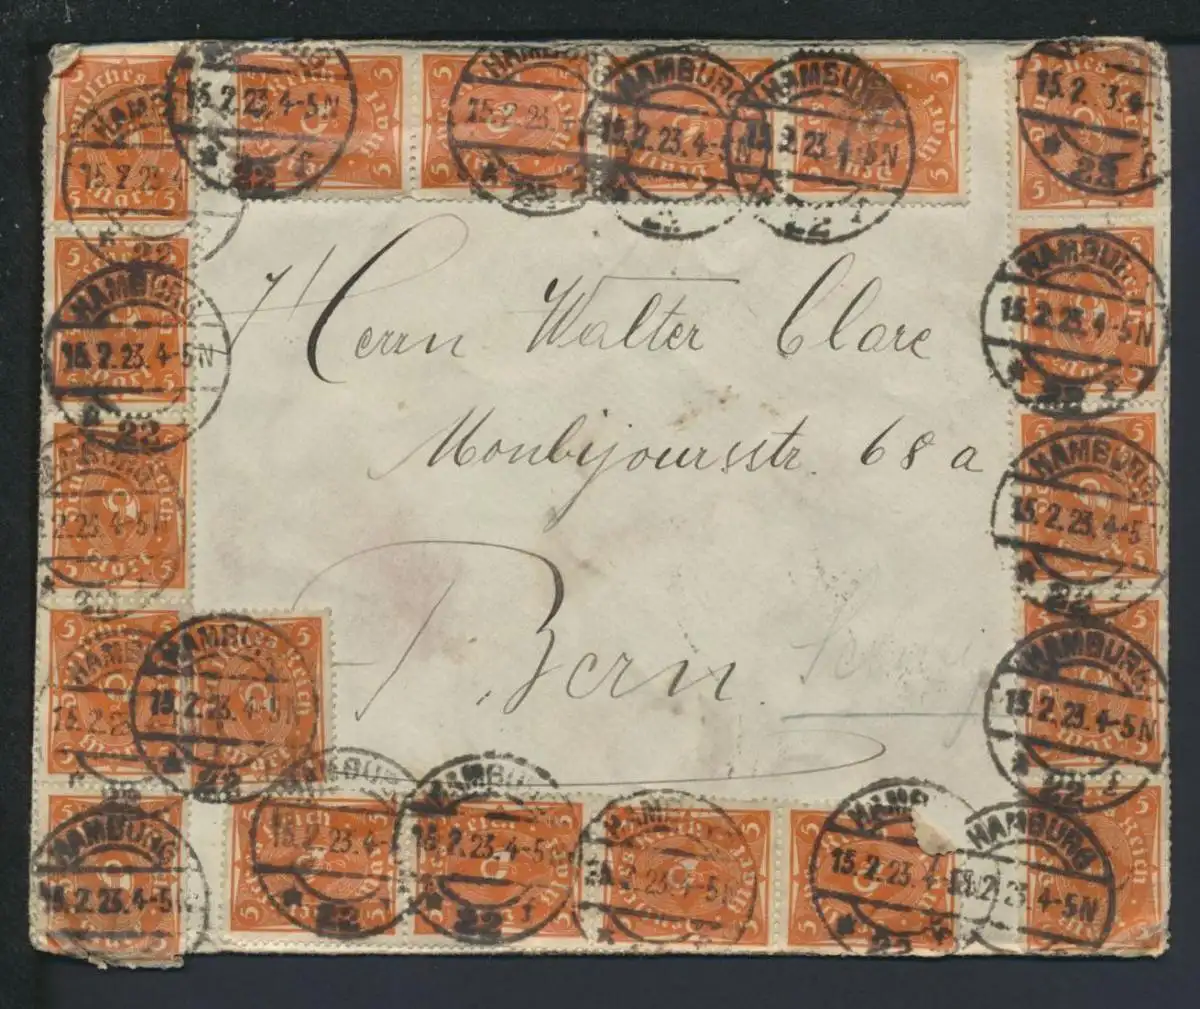 Herrn Walter Clare
Monbijoursstr. 68 a
Bern
HAMBURG
15.2.23.4-5N
* 22 f
Deutsches Reich
5 Mark 5